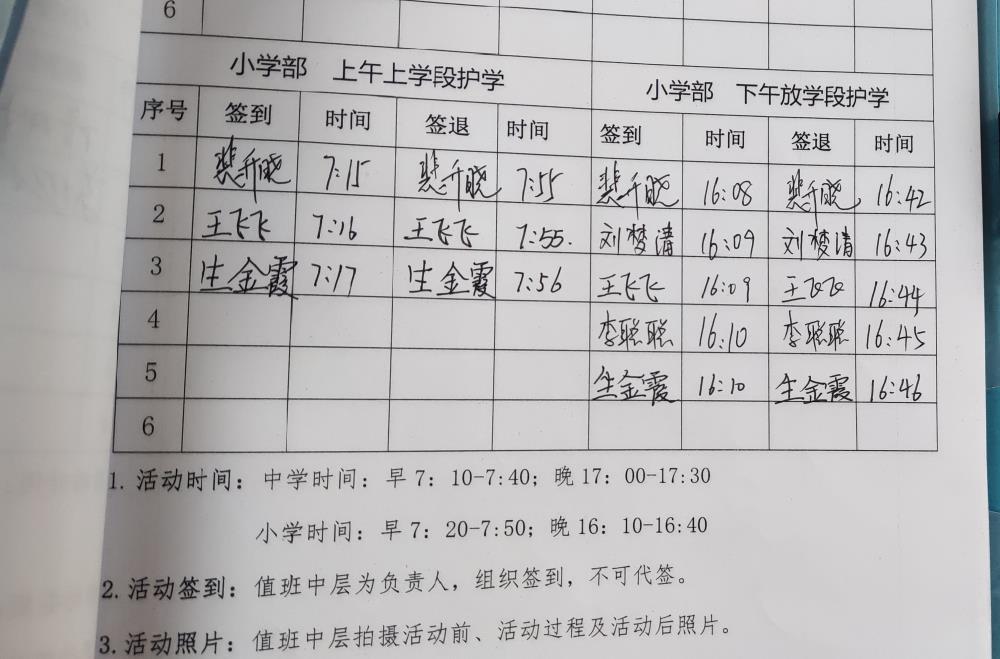 6
小学部 上午上学段护学 小学部 下午放学段护学
序号 签到 时间 签退 时间 签到 时间 签退 时间
1 裴千晓 7:15 裴千晓 7:55 裴千晓 16:08 裴千晓 16:42
2 王飞飞 7:16 王飞飞 7:55. 刘梦清 16:09 刘梦清 16:43
3 生金霞 7:17 生金霞 7:56 王飞飞 16:09 王飞飞 16:44
4 李聪聪 16:10 李聪聪 16:45
5 生金霞 16:10 生金霞 16:46
6
1.活动时间：中学时间：早7：10-7:40；晚17：00-17:30
小学时间：早7：20-7:50；晚16：10-16:40
2.活动签到：值班中层为负责人，组织签到，不可代签。
3.活动照片：值班中层拍摄活动前、活动过程及活动后照片。